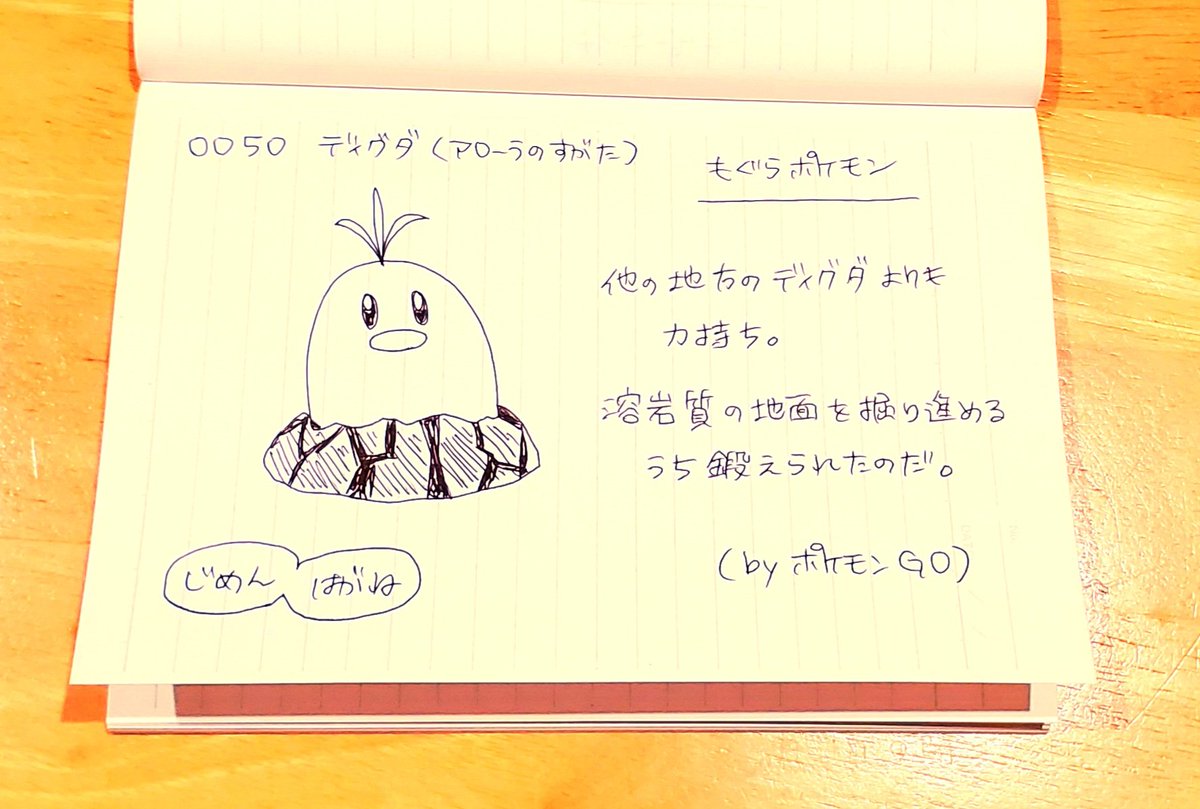 0050 ディグダ(アローラのすがた)
もぐらポケモン
他の地方のディグダよりも
力持ち。
溶岩質の地面を掘り進める
うち鍛えられたのだ。
(by ポケモンGO)
じめん はがね